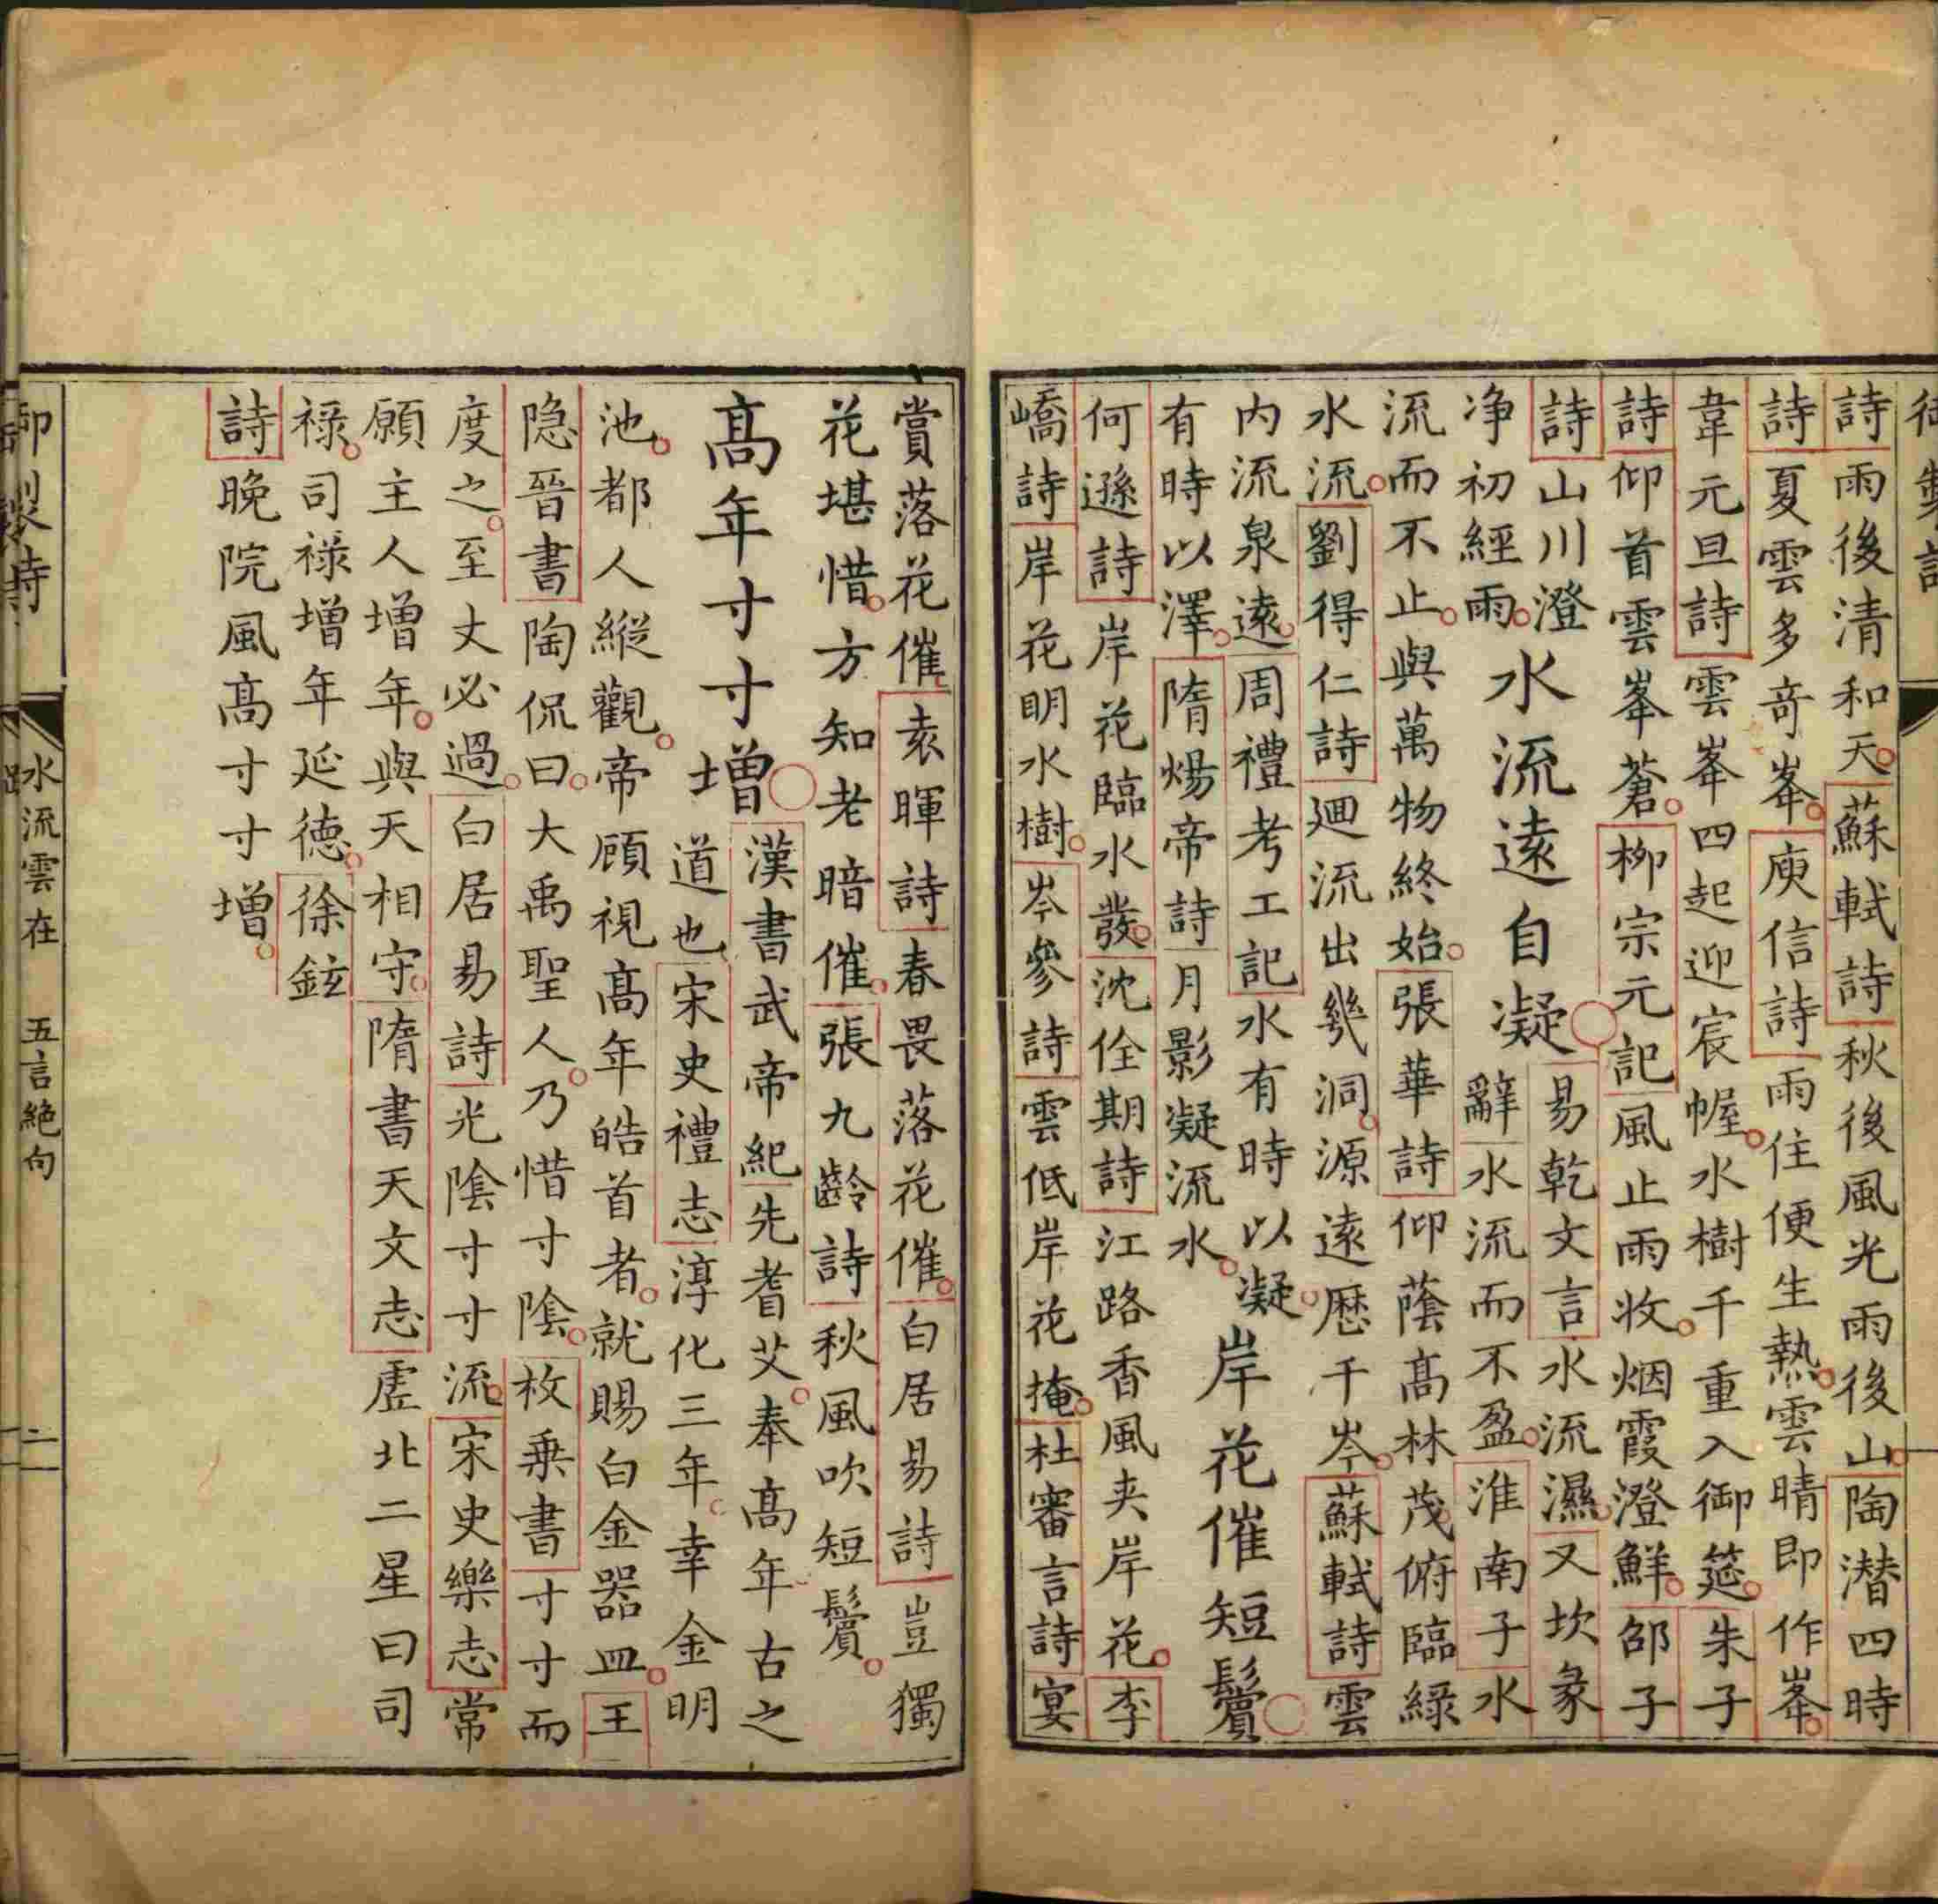 詩雨後清和天蘇軾詩秋後風光雨後山陶潛四時
詩夏雲多奇峯庾信詩雨住便生熱雲晴即作峯
韋元旦詩雲峯四起迎宸幄水樹千重入御筵朱子
詩仰首雲峯蒼柳宗元記風止雨收烟霞澄鮮邵子
詩山川澄
淨初經雨
水流遠自凝
易乾文言水流濕又坎彖
辭水流而不盈淮南子水
流而不止與萬物終始張華詩仰蔭高林茂俯臨綠
水流劉得仁詩廻流出幾洞源遠歷千岑蘇軾詩雲
內流泉遠周禮考工記水有時以凝
有時以澤隋煬帝詩月影凝流水
岸花催短鬢
何遜詩岸花臨水發沈佺期詩江路香風夾岸花李
嶠詩岸花明水樹岑參詩雲低岸花掩杜審言詩宴
賞落花催袁暉詩春畏落花催白居易詩豈獨
花堪惜方知老暗催張九齡詩秋風吹短鬢
高年寸寸增
漢書武帝紀先耆艾奉高年古之
道也宋史禮志淳化三年幸金明
池都人縱觀帝顧視高年皓首者就賜白金器皿王
隐晉書陶侃曰大禹聖人乃惜寸陰枚乗書寸寸而
度之至丈必過白居易詩光陰寸寸流宋史樂志常
願主人增年與天相守隋書天文志虛北二星曰司
祿司祿增年延德徐鉉
詩晚院風高寸寸增
御製詩
水流雲在 五言絶句 二